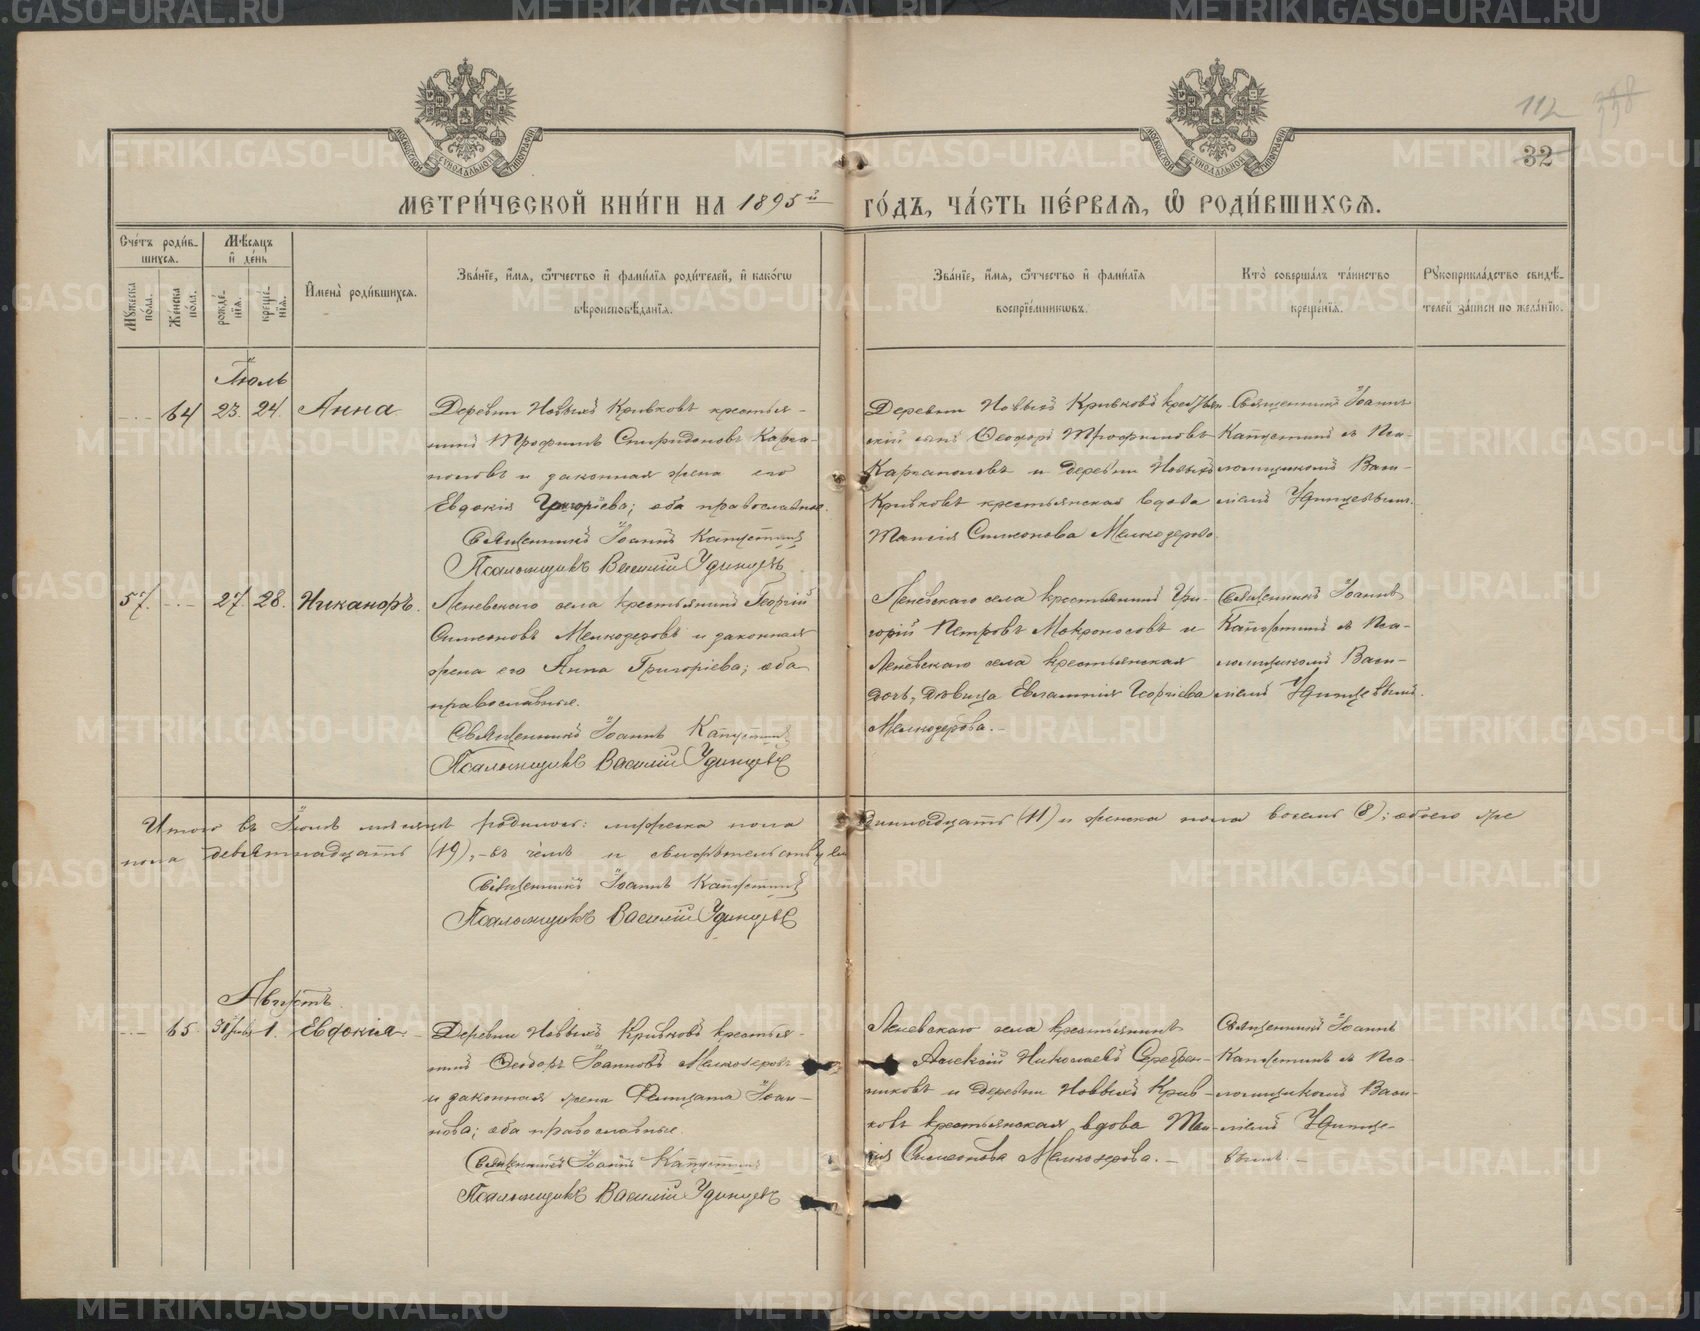 112 338
32
МЕТРИ́ЧЕСКОЙ КНИ́ГИ НА 1895й ГО́ДЪ, ЧА́СТЬ ПЕ́РВАѦ, Ѡ РОДИ́ВШИХСѦ.
Сче́тъ роди́в-
шихсѧ.
Мꙋ́жеска по́ла.
Же́нска по́ла.
Мѣ́сѧцъ и҆ де́нь
рожде́-нїѧ.
креще́-нїѧ.
И҆мена̀ роди́вшихсѧ.
Зва́нїе, и҆́мѧ, ѻ҆́тчество и҆ фами́лїѧ роди́телей, и҆ како́гѡ
вѣроисповѣ́данїѧ.
Зва́нїе, и҆́мѧ, ѻ҆́тчество и҆ фами́лїѧ
воспрїе́мникѡвъ.
Кто̀ соверша́лъ та́инство
креще́нїѧ.
Рꙋкоприкла́дство свидѣ́-
телей за́писи по жела́нїю.
Іюль
64 23. 24. Анна
Деревни Новыхъ Кривковъ крестья-
нинъ Трофимъ Спиридоновъ Карга-
половъ и законная жена его
Евдокія Григоріева; оба православные.
Священникъ Іоаннъ Капустинъ
Псаломщикъ Василій Удинцевъ
Деревни Новыхъ Кривковъ крестьян-
скій сынъ Ѳеодоръ Трофимовъ
Каргаполовъ и деревни Новыхъ
Кривковъ крестьянская вдова
Таисія Симеонова Мелкозерова.
Священникъ Іоаннъ
Капустинъ съ Пса-
ломщикомъ Васи-
ліемъ Удинцевымъ.
57. 27. 28. Никаноръ.
Леневскаго села крестьянинъ Георгій
Симеоновъ Мелкозеровъ и законная
жена его Анна Григоріева; оба
православные.
Священникъ Іоаннъ Капустинъ
Псаломщикъ Василій Удинцевъ
Леневскаго села крестьянинъ Гри-
горій Петровъ Мокроносовъ и
Леневскаго села крестьянская
дочь, дѣвица Евлампія Георгіева
Мелкозерова.-
Священникъ Іоаннъ
Капустинъ съ Пса-
ломщикомъ Васи-
ліемъ Удинцевымъ.
Итого въ Іюлѣ мѣсяцѣ родилось: мужеска пола одиннадцать (11) и женска пола восемь (8); обоего же
пола девятнадцать (19), -въ чемъ и свидѣтельствуемъ
Священникъ Іоаннъ Капустинъ
Псаломщикъ Василій Удинцевъ
Августъ
65 31 Іюля 1. Евдокія.
Деревни Новыхъ Кривковъ крестья-
нинъ Ѳеодоръ Іоанновъ Мелкозеровъ
и законная жена Фелицата Іоан-
нова; оба православные.
Священникъ Іоаннъ Капустинъ
Псаломщикъ Василій Удинцевъ
Леневскаго села крестьянинъ
Алексій Николаевъ Серебрен-
никовъ и деревни Новыхъ Крив-
ковъ крестьянская вдова Таи-
сія Симеонова Мелкозерова.-
Священникъ Іоаннъ
Капустинъ съ Пса-
ломщикомъ Васи-
ліемъ Удинце-
вымъ.-
METRIKI.GASO-URAL.RU